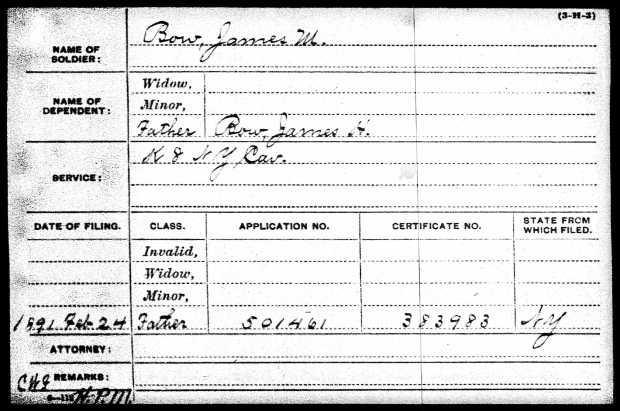 (3-H-3)
NAME OF SOLDIER: Bow, James M.
NAME OF DEPENDENT:
Widow,
Minor,
Father Bow, James H.
SERVICE: K 8 NY Cav.
DATE OF FILING. CLASS. APPLICATION NO. CERTIFICATE NO. STATE FROM WHICH FILED.
Invalid,
Widow,
Minor,
1891 Feb 24 Father 501461 383983 NY
ATTORNEY:
REMARKS:
H.P.M.